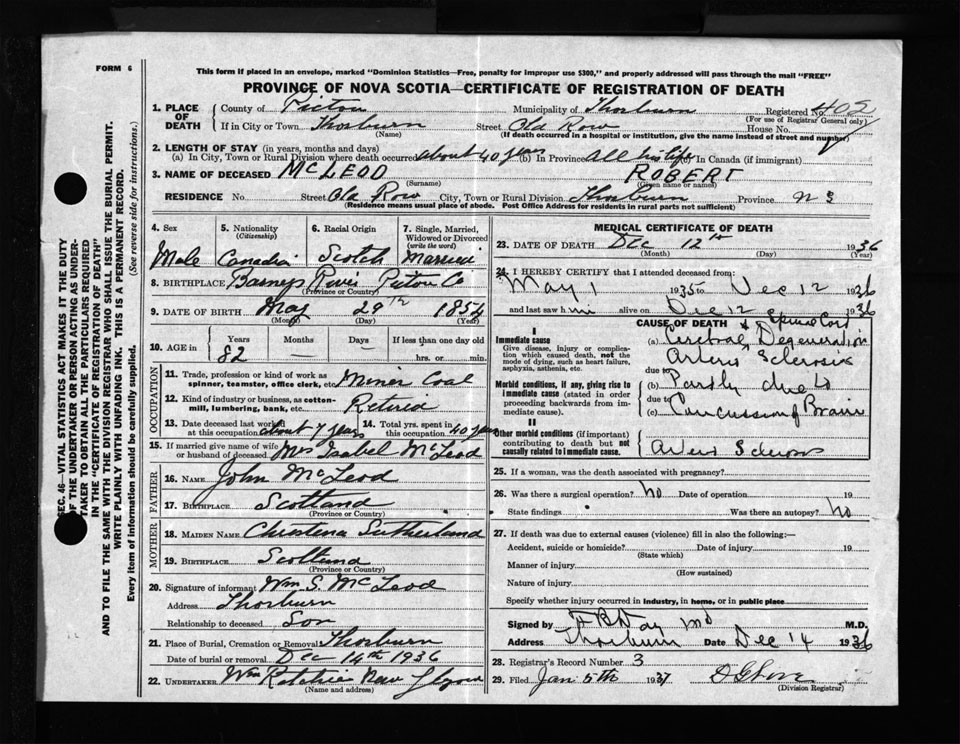 FORM 6
This form if placed in an envelope, marked "Dominion Statistics—Free, penalty for improper use $300," and properly addressed will pass through the mail "FREE"
PROVINCE OF NOVA SCOTIA—CERTIFICATE OF REGISTRATION OF DEATH
SEC. 46—VITAL STATISTICS ACT MAKES IT THE DUTY
OF THE UNDERTAKER OR PERSON ACTING AS UNDER-
TAKER TO OBTAIN ALL THE PARTICULARS REQUIRED
IN THE "CERTIFICATE OF REGISTRATION OF DEATH"
AND TO FILE THE SAME WITH THE DIVISION REGISTRAR WHO SHALL ISSUE THE BURIAL PERMIT.
WRITE PLAINLY WITH UNFADING INK. THIS IS A PERMANENT RECORD.
Every item of information should be carefully supplied. (See reverse side for instructions.)
1. PLACE OF DEATH County of Pictou Municipality of Thorburn Registered 407
(For use of Registrar General only)
If in City or Town Thorburn Street Old Row House No.
(Name) (If death occurred in a hospital or institution, give the name instead of street and number)
2. LENGTH OF STAY (in years, months and days)
(a) In City, Town or Rural Division where death occurred about 40 years (b) In Province All his life (c) In Canada (if immigrant)
3. NAME OF DECEASED McLEOD ROBERT
(Surname) (Given name or names)
RESIDENCE No. Street Old Row City, Town or Rural Division Thorburn Province N S
(Residence means usual place of abode. Post Office Address for residents in rural parts not sufficient)
4. Sex 5. Nationality (Citizenship) 6. Racial Origin 7. Single, Married, Widowed or Divorced (write the word)
Male Canadian Scotch Married
8. BIRTHPLACE Barneys River Pictou Co
(Province or Country)
9. DATE OF BIRTH May 29th 1854
(Month) (Day) (Year)
10. AGE in Years Months Days If less than one day old
82 — — hrs. or min.
OCCUPATION
11. Trade, profession or kind of work as
spinner, teamster, office clerk, etc. Miner Coal
12. Kind of industry or business, as cotton-
mill, lumbering, bank, etc. Retired
13. Date deceased last worked at this occupation about 7 years 14. Total yrs. spent in this occupation 40 years
15. If married give name of wife or husband of deceased Mrs Isabel McLeod
FATHER
16. NAME John McLeod
17. BIRTHPLACE Scotland
(Province or Country)
MOTHER
18. MAIDEN NAME Christena Sutherland
19. BIRTHPLACE Scotland
(Province or Country)
20. Signature of informant Wm S. McLeod
Address Thorburn
Relationship to deceased Son
21. Place of Burial, Cremation or Removal Thorburn
Date of burial or removal Dec 14th 1936
22. UNDERTAKER Wm Ritchie New Glasgow
(Name and address)
MEDICAL CERTIFICATE OF DEATH
23. DATE OF DEATH Dec 12th 1936
(Month) (Day) (Year)
24. I HEREBY CERTIFY that I attended deceased from:
May 1 1935 to Dec 12 1936
and last saw him alive on Dec 12 1936
CAUSE OF DEATH
I
Immediate cause
Give disease, injury or complica-
tion which caused death, not the
mode of dying, such as heart failure,
asphyxia, asthenia, etc.
(a) Cerebral & Spinal Cord Degeneration
due to Arterio Sclerosis
Morbid conditions, if any, giving rise to
immediate cause (stated in order
proceeding backwards from im-
mediate cause).
(b) Partly due to
due to
(c) Concussion of Brain
II
Other morbid conditions (if important)
contributing to death but not
causally related to immediate cause.
Arterio Sclerosis
25. If a woman, was the death associated with pregnancy?
26. Was there a surgical operation? No Date of operation 19
State findings Was there an autopsy? No
27. If death was due to external causes (violence) fill in also the following:—
Accident, suicide or homicide? Date of injury 19
(State which)
Manner of injury
(How sustained)
Nature of injury
Specify whether injury occurred in industry, in home, or in public place
Signed by Day MD M.D.
Address Thorburn Date Dec 14 1936
28. Registrar's Record Number 3
29. Filed Jan 5th 1937
(Division Registrar)